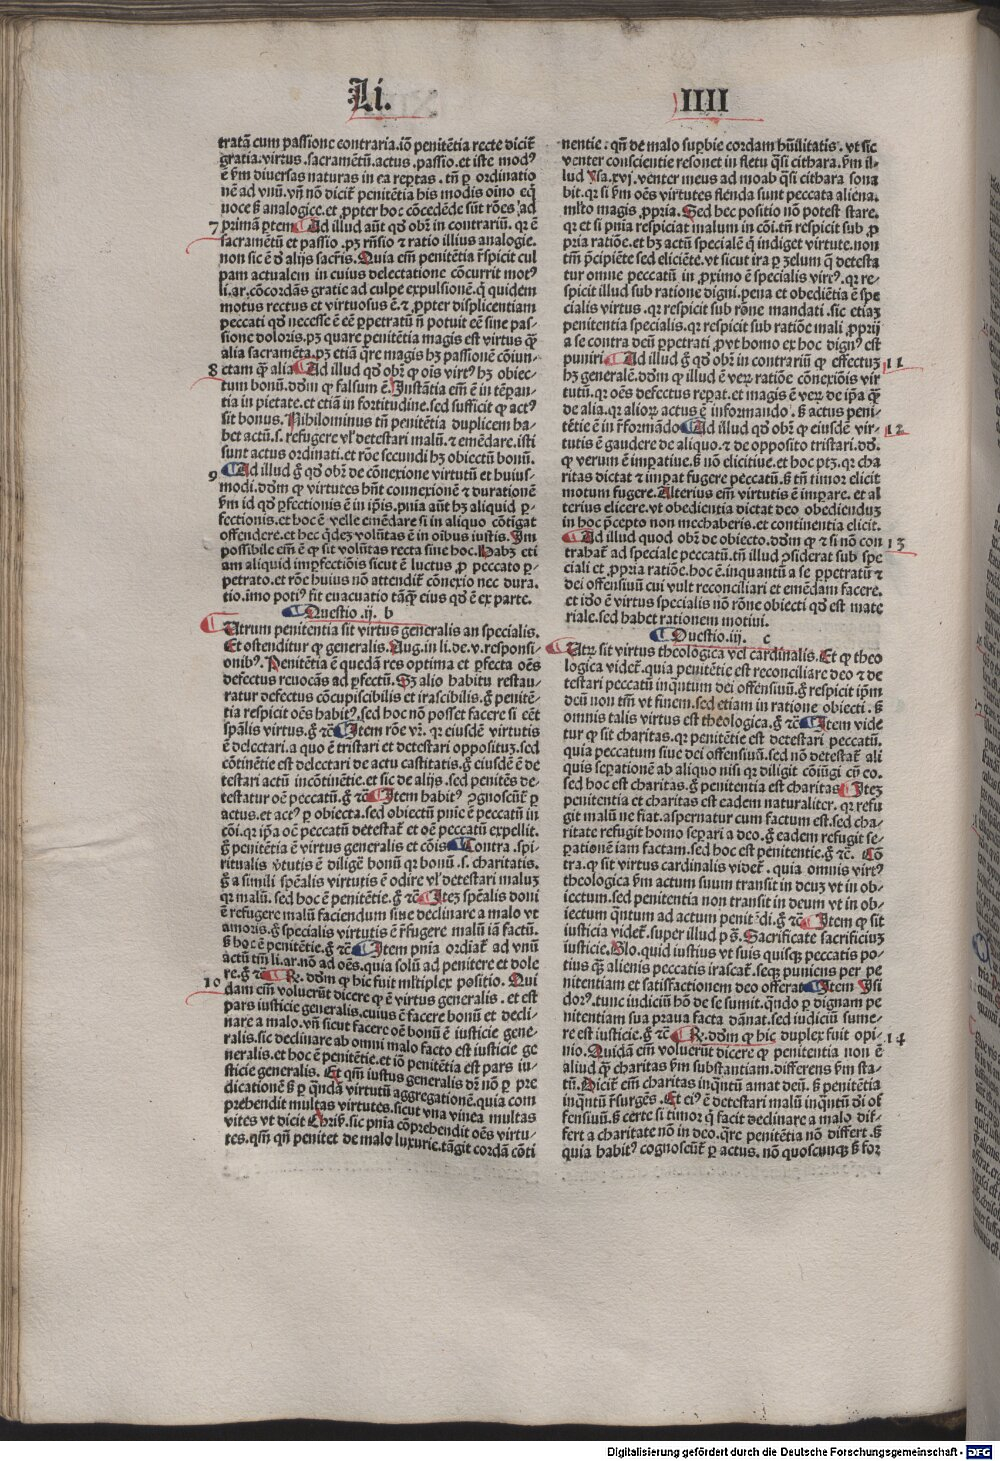 Li. IIII
tratā cum passione contraria. iō penitētia recte dicit᷑
gratia. virtus. sacramētū. actus. passio. et iste modꝰ
ē ẜm diuersas naturas in ea repertas. tn̄ ꝑ ordinatio
nē ad vnū. vn̄ nō dicit᷑ penitētia his modis oīno eq̄
uoce ẜ analogice. et ꝓpter hoc cōcedēde sūt rōes ad
7 primā ꝑtem Ad illud aūt qd̓ obr̄ in contrariū. qr ē
sacramētū et passio. pꝫ rn̄sio ⁊ ratio illius analogie.
non sic ē d̓ alijs sacr̄is. Quia em̄ penitētia r̄spicit cul
pam actualem in cuius delectatione cōcurrit motꝰ
li. ar. cōcordās gratie ad culpe expulsionē. q̇ quidem
motus rectus et virtuosus ē. ⁊ ꝓpter displicentiam
peccati qd̓ necesse ē eē ꝑpetratū n̄ potuit eē sine pas-
sione doloris. pꝫ quare penitētia magis est virtus q̄ꝫ
alia sacramēta. pꝫ etiā q̄re magis hꝫ passionē cōiun-
8 ctam q̄ꝫ alia Ad illud qd̓ obr̄ ꝙ oīs virtꝰ hꝫ obiec-
tum bonū. dd̓m ꝙ falsum ē. Instātia em̄ ē in tēpan-
tia in pietate. et etiā in fortitudine. sed sufficit ꝙ actꝰ
sit bonus. Nihilominus tn̄ penitētia duplicem ha-
bet actū. s. refugere vl̓ detestari malū. ⁊ emēdare. isti
sunt actus ordinati. et rōe secundi hꝫ obiectū bonū.
9 Ad illud ġ qd̓ obr̄ de cōnexione virtutū et huius-
modi. dd̓m ꝙ virtutes hn̄t connexionē ⁊ durationē
ẜm id qd̓ ꝑfectionis ē in ip̄is. pn̄ia aūt hꝫ aliquid ꝑ-
fectionis. et hoc ē velle emēdare si in aliquo cōtigat
offendere. et hec q̇deꝫ volūtas ē in oībus iustis. Im
possibile em̄ ē ꝙ sit volūtas recta sine hoc. Habꝫ eti
am aliquid imꝑfectiōis sicut ē luctus ꝓ peccato ꝑ-
petrato. et rōe huius nō attendit᷑ cōnexio nec dura-
tio. imo potiꝰ fit euacuatio tāq̄ꝫ eius qd̓ ē ex parte.
Questio .ij. b
Utrum penitentia sit virtus generalis an specialis.
Et ostenditur ꝙ generalis. Aug. in li. de. v. responsi-
onibꝰ. Penitētia ē quedā res optima et ꝑfecta oēs
defectus reuocās ad ꝑfectū. Sꝫ alio habitu restau-
ratur defectus cōcupiscibilis et irascibilis. ġ penitē-
tia respicit oēs habitꝰ. sed hoc nō posset facere si eēt
spālis virtus. ġ ⁊c̄ Item rōe vr̄. qr eiusdē virtutis
ē delectari. a quo ē tristari et detestari oppositum. sed
cōtinētie est delectari de actu castitatis. ġ eiusdē ē de
testari actū incōtinētie. et sic de alijs. sed penitēs de-
testatur oē peccatū. ġ ⁊c̄ Item habitꝰ ꝯgnoscūt᷑ ꝑ
actus. et actꝰ ꝑ obiecta. sed obiectū pn̄ie ē peccatū in
cōi. qr ip̄a oē peccatū detestat᷑ et oē peccatū expellit.
ġ penitētia ē virtus generalis et cōis Contra. spi-
ritualis v̓tutis ē diligē bonū qr bonū. s. charitatis.
ġ a simili spēalis virtutis ē odire vl̓ detestari malum
qr malū. sed hoc ē penitētie. ġ ⁊c̄ Item spēalis doni
ē refugere malū faciendum siue declinare a malo vt
amoris. ġ specialis virtutis ē r̄fugere malū iā factū.
ẜ hoc ē penitētie. ġ ⁊c̄ Item pn̄ia ordiat᷑ ad vnū
actū tm̄ li. ar. nō ad oēs. quia solū ad penitere et dole
10 re. ġ ⁊c̄ Rꝫ. dd̓m ꝙ hic fuit ml̓tiplex positio. Qui
dam em̄ voluerūt dicere ꝙ ē virtus generalis. et est
pars iusticie generalis. cuius ē facere bonū et decli-
nare a malo. vn̄ sicut facere oē bonū ē iusticie gene-
ralis. sic declinare ab omni malo facto est iusticie ge
neralis. et hoc ē penitētie. et iō penitētia est pars iu-
sticie generalis. Et qm̄ iustus generalis dr̄ nō ꝑ pre
dicationē ẜ ꝑ q̄ndā virtutū aggregationē. quia com
prehendit multas virtutes. sicut vna vinea multas
vites vt dicit Chriẜ. sic pn̄ia cōprehendit oēs virtu-
tes. qm̄ qn̄ penitet de malo luxurie. tāgit cordā cōti
nentie: qn̄ de malo suꝑbie cordam hūilitatis. vt sic
venter conscientie resonet in fletu q̄si cithara. ẜm il-
lud Ysa. xvj. venter meus ad moab q̄si cithara sona
bit. qr si ẜm oēs virtutes flenda sunt peccata aliena.
ml̓to magis ꝓpria. Sed hec positio nō potest stare.
qr et si pn̄ia respiciat malum in cōi. tn̄ respicit sub ꝓ
pria ratiōe. et hꝫ actū specialē q̇ indiget virtute. non
tm̄ p̄cipiēte sed eliciēte. vt sicut ira ꝑ zelum q̇ detesta
tur omne peccatū in ꝓximo ē specialis virtꝰ. qr re-
spicit illud sub ratione digni. pena et obediētia ē spe
cialis virtus. qr respicit sub rōne mandati. sic etiam
penitentia specialis. qr respicit sub ratiōe mali ꝓprij
a se contra deū ꝑpetrati ꝓvt homo ex hoc dignꝰ est
puniri Ad illud ġ qd̓ obr̄ in contrariū ꝙ effectum 11
hꝫ generalē. dd̓m ꝙ illud ē veꝝ ratiōe cōnexiōis vir
tutū. qr oēs defectus reꝑat. et magis ē veꝝ de ip̄a q̄ꝫ
de alia. qr alioꝝ actus ē informando. ẜ actus peni-
tētie ē in r̄formādo Ad illud qd̓ obr̄ ꝙ eiusdē vir- 12
tutis ē gaudere de aliquo. ⁊ de opposito tristari. dd̓.
ꝙ verum ē imꝑatiue. ẜ nō elicitiue. et hoc ptꝫ. qr cha
ritas dictat ⁊ imꝑat fugere peccatū. ẜ tn̄ timor elicit
motum fugere. Alterius em̄ virtutis ē imꝑare. et al
terius elicere. vt obedientia dictat deo obediendum
in hoc p̄cepto non mechaberis. et continentia elicit.
Ad illud quod obr̄ de obiecto. dd̓m ꝙ ⁊ si nō con 13
trahat᷑ ad speciale peccatū. tn̄ illud ꝯsiderat sub spe
ciali et ꝓpria ratiōe. hoc ē. inquantū a se ꝑpetratū ⁊
dei offensiuū cui vult reconciliari et emēdam facere.
et id̓o ē virtus specialis nō rōne obiecti qd̓ est mate
riale. sed habet rationem motiui.
Questio .iij. c
Utꝝ sit virtus theologica vel cardinalis. Et ꝙ theo
logica videt᷑. quia penitētie est reconciliare deo ⁊ de
testari peccatū inq̄ntum dei offensiuū. ġ respicit ip̄m
deū non tm̄ vt finem. sed etiam in ratione obiecti. ẜ
omnis talis virtus est theologica. ġ ⁊c̄ Item vide
tur ꝙ sit charitas. qr penitētie est detestari peccatū.
quia peccatum siue dei offensiuū. sed nō detestat᷑ ali
quis seꝑationē ab aliquo nisi qr diligit cōiūgi cū eo.
sed hoc est charitas. ġ penitentia est charitas Item
penitentia et charitas est eadem naturaliter. qr refu
git malū ne fiat. aspernatur cum factum est. sed cha-
ritate refugit homo seꝑari a deo. ġ eadem refugit se-
ꝑationē iam factam. sed hoc est penitentie. ġ ⁊c̄. Cō
tra. ꝙ sit virtus cardinalis videt᷑. quia omnis virtꝰ
theologica ẜm actum suum transit in deum vt in ob-
iectum. sed penitentia non transit in deum vt in ob-
iectum q̄ntum ad actum penitēdi. ġ ⁊c̄ Item ꝙ sit
iusticia videt᷑. super illud p̄s. Sacrificate sacrificium
iusticie. Glo. quid iustius vt suis quisꝙ peccatis po-
tius q̄ꝫ alienis peccatis irascat᷑. seqꝫ puniens per pe
nitentiam et satisfactionem deo offerat Item Ysi
dorꝰ. tunc iudiciū hō de se sumit. q̄ndo ꝑ dignam pe
nitentiam sua praua facta dānat. sed iudiciū sume-
re est iusticie. ġ ⁊c̄ Rꝫ. dd̓m ꝙ hic duplex fuit opi- 14
nio. Quidā em̄ voluerūt dicere ꝙ penitentia non ē
aliud q̄ꝫ charitas ẜm substantiam. differens ẜm sta-
tū. Dicit᷑ em̄ charitas inq̄ntū amat deū. ẜ penitētia
inq̄ntū r̄surgēs. Et eiꝰ ē detestari malū inq̄ntū di̓ of
fensiuū. ẜ certe si timor q̇ facit declinare a malo dif-
fert a charitate nō in deo. q̄re penitētia nō differt. ẜ
quia habitꝰ cognoscūt᷑ ꝑ actus. nō quoscunqꝫ ẜ for
Digitalisierung gefördert durch die Deutsche Forschungsgemeinschaft - DFG